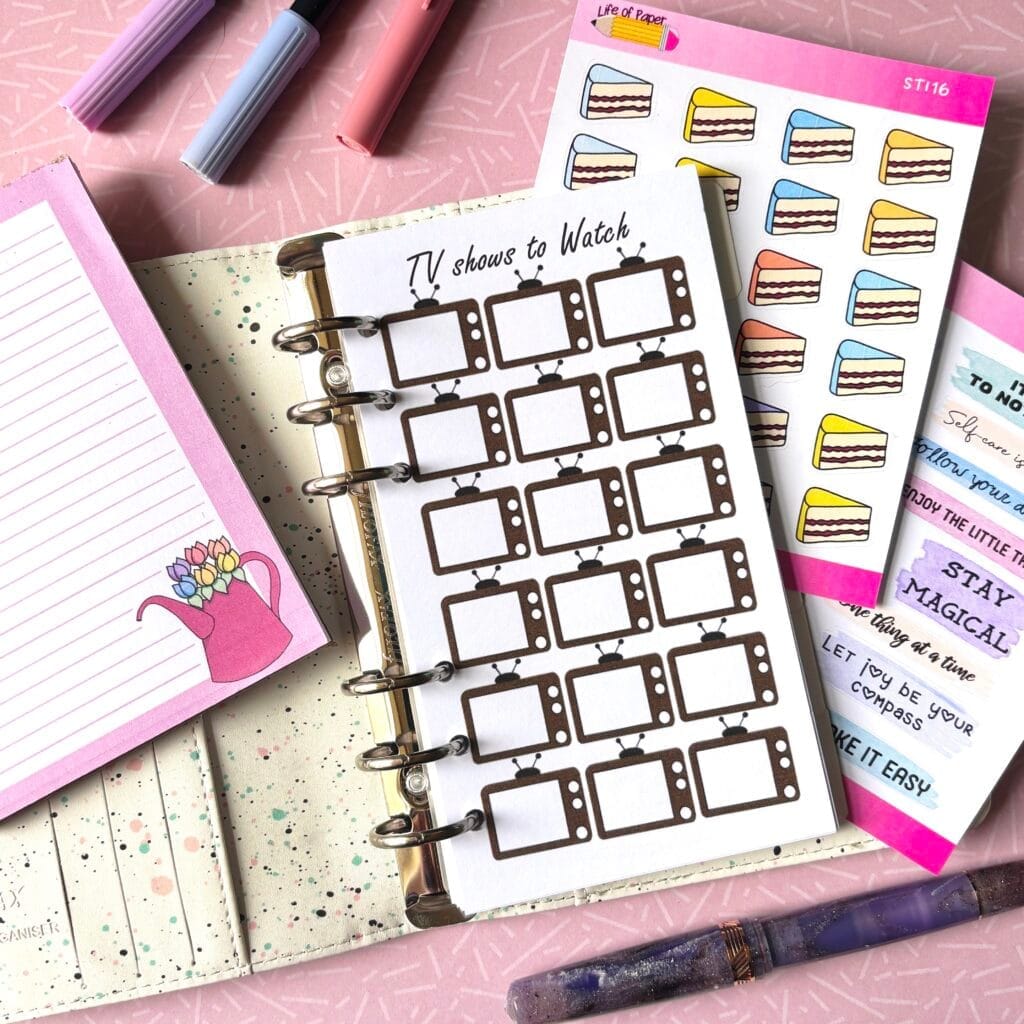 Life of Paper
STI16
TV shows to Watch
TO NO
Self-care is
follow your d
ENJOY THE LITTLE TH
STAY
MAGICAL
one thing at a time
LET joy BE YOUR
COMPASS
KE IT EASY
GANISER